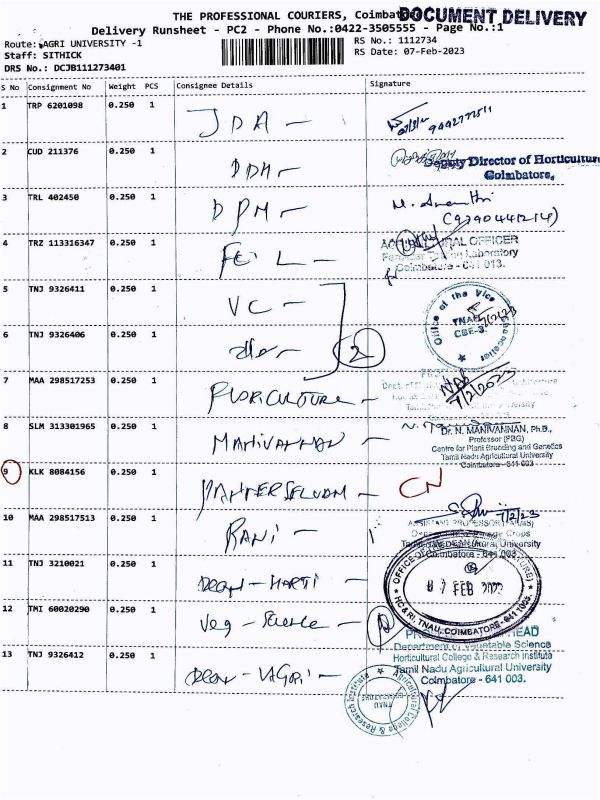 THE PROFESSIONAL COURIERS, Coimbatore
DOCUMENT DELIVERY
Delivery Runsheet - PC2 - Phone No.:0422-3505555 - Page No.:1
Route: AGRI UNIVERSITY -1
RS No.: 1112734
Staff: SITHICK
RS Date: 07-Feb-2023
DRS No.: DCJB111273401
S No Consignment No Weight PCS Consignee Details Signature
1 TRP 6201098 0.250 1 JDA - 9442777511
2 CUD 211376 0.250 1 DDH -
Deputy Director of Horticulture
Coimbatore.
3 TRL 402450 0.250 1 DPM -
4 TRZ 113316347 0.250 1
OFFICER
Laboratory
Coimbatore - 641 013.
5 TNJ 9326411 0.250 1 VC -
Office of the Vice Chancellor
TNAU
CBE-3
7/2/23
6 TNJ 9326406 0.250 1
2
7 MAA 298517253 0.250 1 FLORICULTURE -
7/2/2023
8 SLM 313301965 0.250 1 MANIVANNAN -
Dr. N. MANIVANNAN, Ph.B.,
Professor (PBG)
Centre for Plant Breeding and Genetics
Tamil Nadu Agricultural University
Coimbatore - 641 003
9 KLK 8084156 0.250 1 PANNERSELVAM - CN
10 MAA 298517513 0.250 1 RANI - 7/2/23
ASSISTANT PROFESSOR
Crops
Tamil Nadu Agricultural University
Coimbatore - 641 003
11 TNJ 3210021 0.250 1 Dean - HORTI -
07 FEB 2023
HC & RI, TNAU, COIMBATORE - 641 003.
12 TMI 60020290 0.250 1 Veg - Science -
PROFESSOR HEAD
Department of Vegetable Science
Horticultural College & Research Institute
Tamil Nadu Agricultural University
Coimbatore - 641 003.
13 TNJ 9326412 0.250 1 Dean - AGRI -
Agricultural College & Research Institute
TNAU